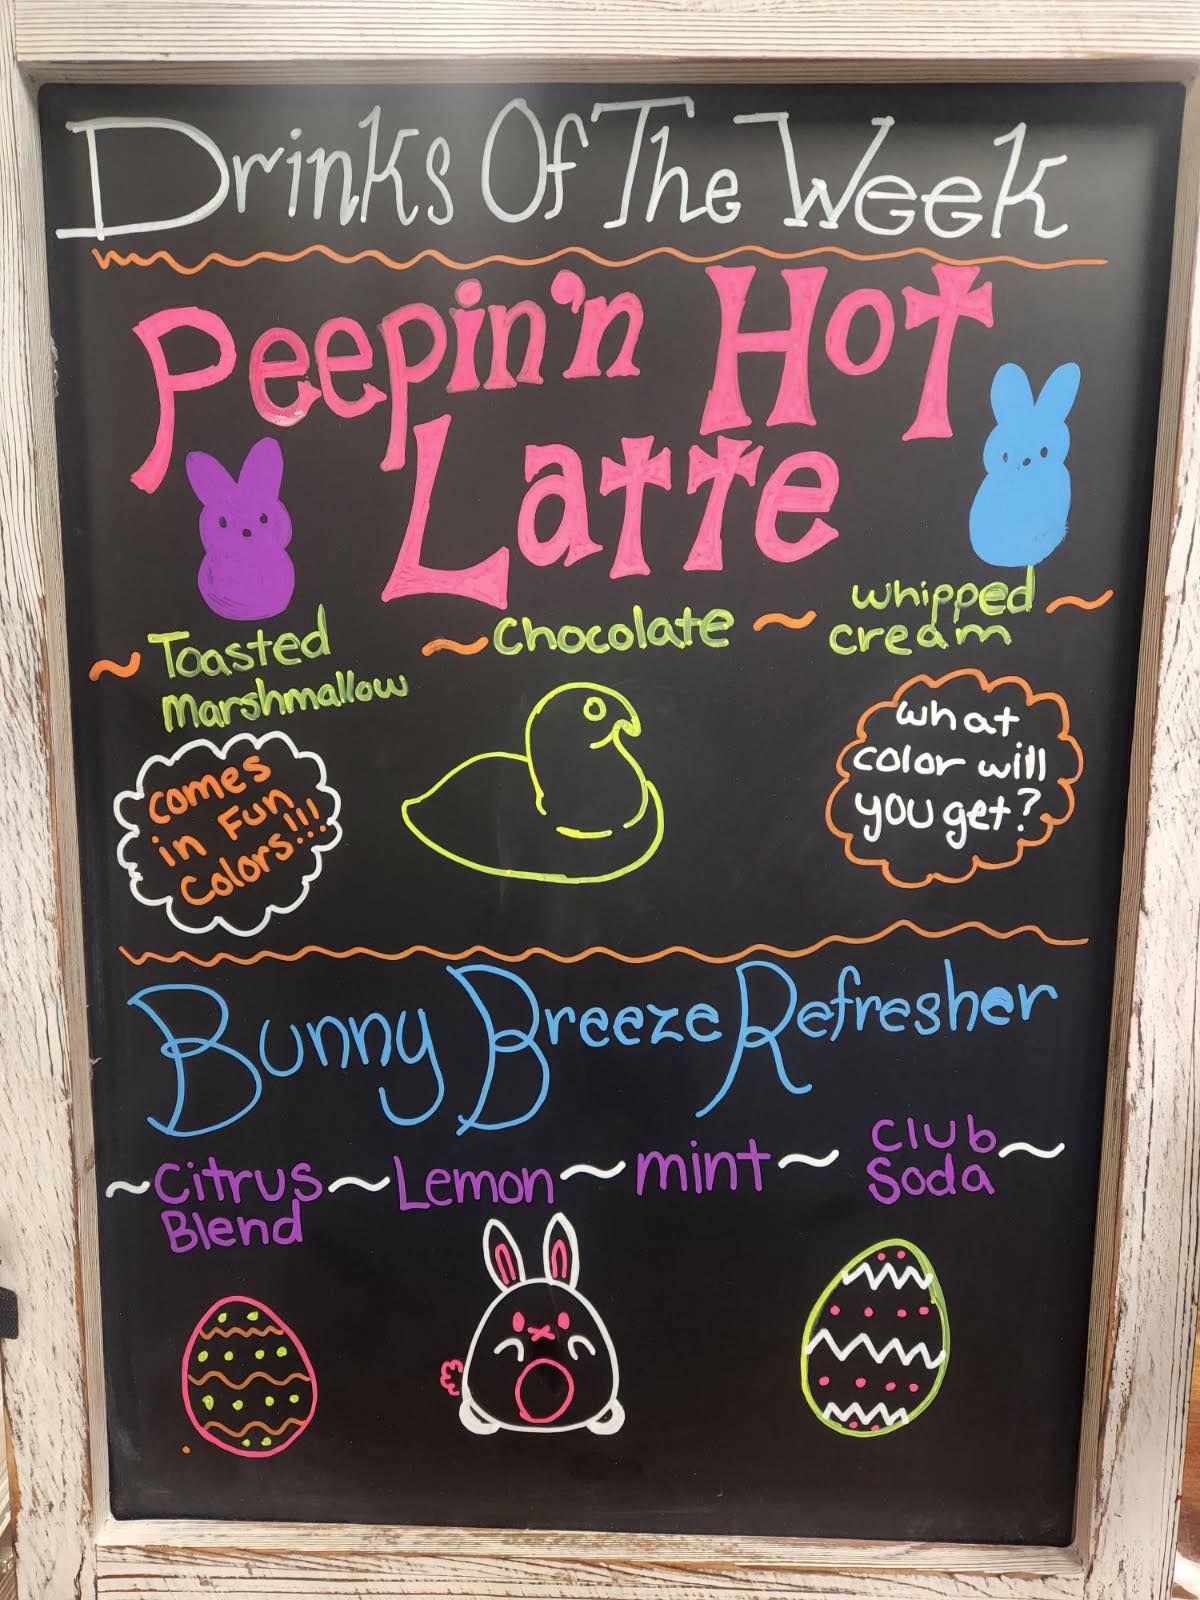 Drinks Of The Week
Peepin'n Hot
Latte
~ Toasted
Marshmallow
~ Chocolate ~
whipped
cream ~
comes
in Fun
Colors!!!
what
color will
you get?
Bunny Breeze Refresher
~ Citrus
Blend
~ Lemon ~ mint ~
Club
Soda ~